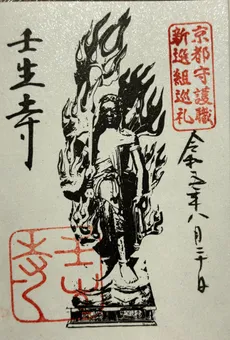 京都守護職
新選組巡礼
令和元年八月二十日
壬生寺